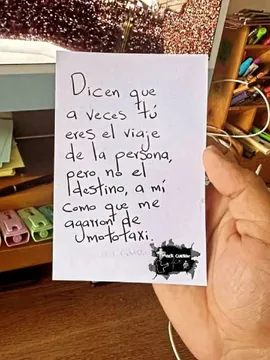 Dicen que
a veces tú
eres el viaje
de la persona,
pero, no el
destino, a mí
como que me
agarron de
mototaxi.